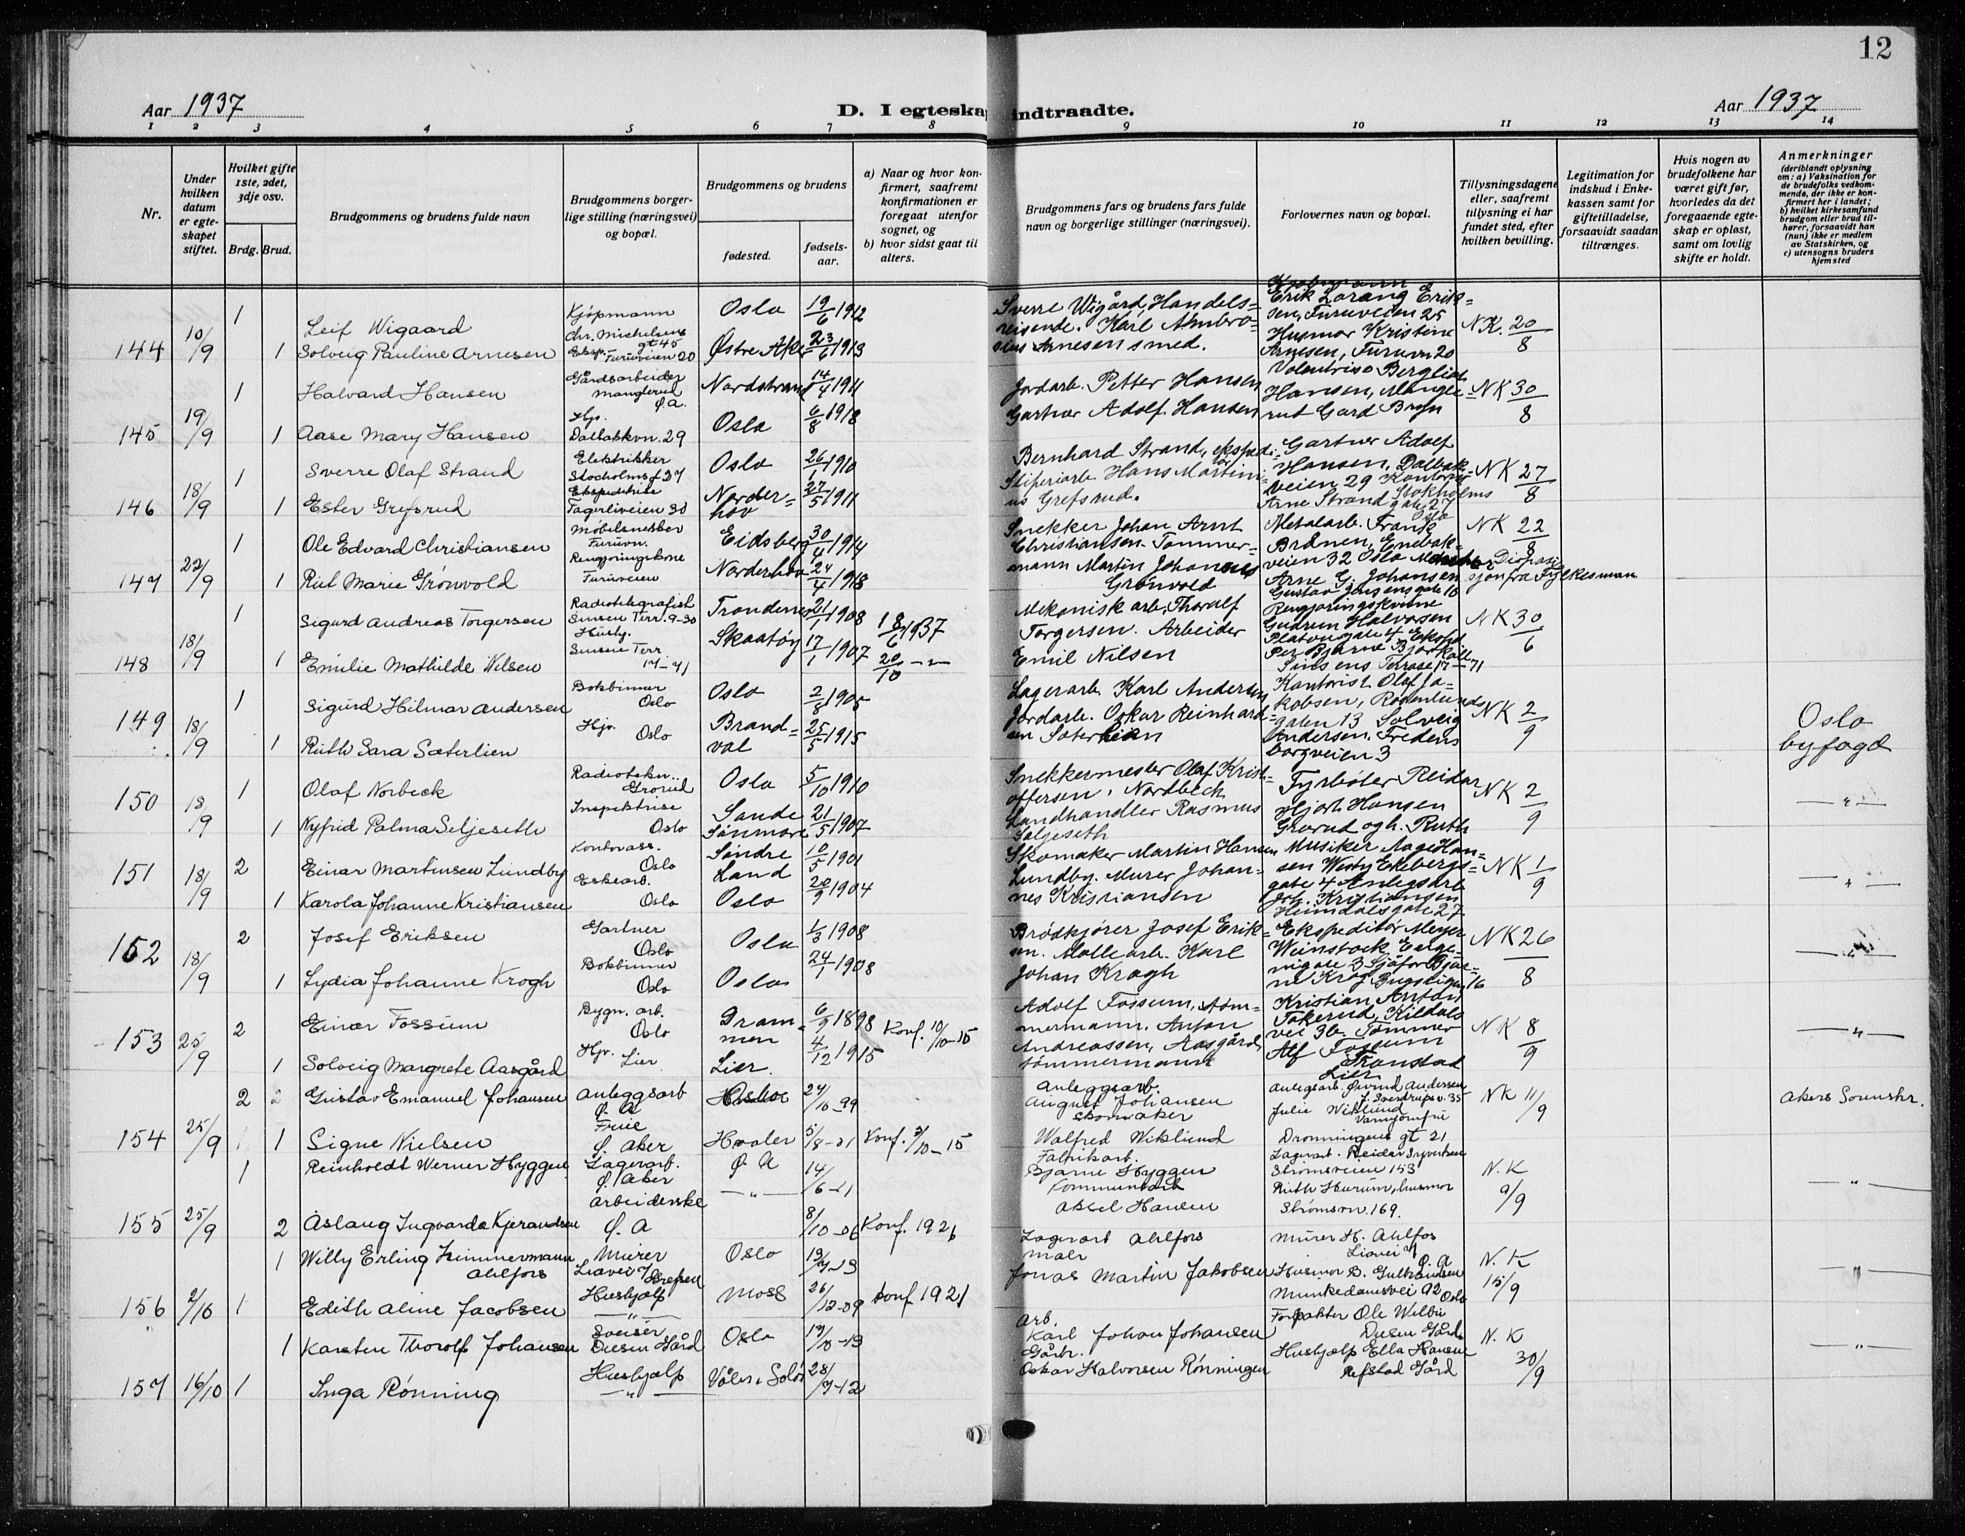 12
Aar 1937
D. I egteskap indtraadte.
Aar 1937
1 2 3 4 5 6 7 8 9 10 11 12 13 14
Nr.
Under hvilken datum er egteskapet stiftet.
Hvilket gifte 1ste, 2det, 3dje osv.
Brdg. Brud.
Brudgommens og brudens fulde navn
Brudgommens borgerlige stilling (næringsvei) og bopæl.
Brudgommens og brudens
fødested.
fødselsaar.
a) Naar og hvor konfirmert, saafremt konfirmationen er foregaat utenfor sognet, og
b) hvor sidst gaat til alters.
Brudgommens fars og brudens fars fulde navn og borgerlige stillinger (næringsvei).
Forlovernes navn og bopæl.
Tillysningsdagene eller, saafremt tillysning ei har fundet sted, efter hvilken bevilling.
Legitimation for indskud i Enkekassen samt for giftetilladelse, forsaavidt saadan tiltrænges.
Hvis nogen av brudefolkene har været gift før, hvorledes da det foregaaende egteskap er opløst, samt om lovlig skifte er holdt.
Anmerkninger
(deriblandt oplysning om: a) Vaksination for de brudefolks vedkommende, der ikke er konfirmert her i landet;
b) hvilket kirkesamfund brudgom eller brud tilhører, forsaavidt han (hun) ikke er medlem av Statskirken, og
c) utensogns bruders hjemsted
144 10/9 1 Leif Wigaard Kjøpmann Chr. Michelsens gt 45 Oslo 19/6 1912 Sverre Wigård, Handelsreisende. Erik Lorang Eriksen, Furuveien 25 N.K. 20/8
1 Solveig Pauline Arnesen Eksp. Furuveien 20 Østre Aker 23/6 1913 Karl Ambrosius Arnesen smed. Husmor Kristine Arnesen, Furuvn 20
145 19/9 1 Halvard Hansen Gårdsarbeider Manglerud Ø.A. Nordstrand 14/4 1911 Jordarb. Petter Hansen Hansen, Manglerud Gard Bryn NK 30/8
1 Aase Mary Hansen Hjv. Dalbakvn. 29 Oslo 6/8 1918 Gartner Adolf Hansen
146 18/9 1 Sverre Olaf Strand Elektrikker Stocholmsgt 27 Oslo 26/1 1910 Bernhard Strand, ekspeditør Gartner Adolf Hansen, Dalbakveien 29 NK 27/8
1 Ester Grefsrud Ekspeditrise Fagerliveien 30 Norderhov 27/5 1911 Sliperiarb. Hans Martinius Grefsrud. Kontorist Arne Strand Stokholmsgate 27 Oslo
147 22/9 1 Ole Edvard Christiansen Møbelsnekker Furuvn. Eidsberg 30/4 1914 Snekker Johan Arnt Christiansen. Metalarb. Frank Brånen, Enebakveien 32 Oslo NK 22/8
1 Rut Marie Grønvold Rengjøringskone Furuveien Norderhov 24/4 1913 Tømmermann Martin Johannes Grønvold Arne G. Johansen Gustav Jensensgate 10
148 18/9 1 Sigurd Andreas Torgersen Radiotelegrafist Sinsen Terr. 9-30 Trondenes 21/1 1908 18/6 1937 Mekanisk arb. Thoralf Torgersen. Rengjøringskvinne Gudrun Halvorsen Platousgate 4 NK 30/6
1 Emilie Mathilde Nilsen Husbg. Sinsen Terr. 17-71 Skaatøy 17/1 1907 20/10 -"- Arbeider Emil Nilsen Per Bjarne Bjørkøll Sinsens Terrase 17-71
149 18/9 1 Sigurd Hilmar Andersen Bokbinner Oslo Oslo 2/8 1905 Lagerarb. Karl Andersen Kontorist Olaf Jakobsen, Rodenlundsgaten 13 NK 2/9 Oslo byfogd
1 Ruth Sara Sæterlien Hjv. Oslo Brandval 25/5 1915 Jordarb. Oskar Reinhardsen Sæterlien Solveig Andersen. Fredensborgveien 3
150 18/9 1 Olaf Norbeck Radiotekn. Grorud Oslo 5/10 1910 Snekkermester Olaf Kristoffersen, Nordbeck Fyrbøter Reidar Hjort Hansen NK 2/9 -"-
1 Nyfrid Palma Seljeseth Inspektrise Oslo Sande Sunmøre 21/5 1907 Landhandler Rasmus Seljeseth Grorud og h. Ruth
151 18/9 2 Einar Martinsen Lundby Kontorass. Oslo Søndre Land 10/5 1901 Skomaker Martin Hansen Lundby. Musiker Aage Hansen Westy Ekebergsgate 4 NK 1/9 -"-
1 Karola Johanne Kristiansen Eskearb. Oslo Oslo 20/9 1904 Murer Johannes Kristiansen Anlegsarb. Joh. Kristiansen Heimdalsgate 27
152 18/9 2 Josef Eriksen Gartner Oslo Oslo 1/3 1908 Brødkjører Josef Eriksen. Ekspeditør Meyer Weinstock NK 26/8 -"-
1 Lydia Johanne Krogh Bokbinner Oslo Oslo 24/1 1908 Mølle arb. Karl Johan Krogh Sjåfør Bjarne Krog
153 25/9 2 Einar Fossum Bygn. arb. Oslo Drammen 6/9 1898 Konf. 10/10-15 Adolf Fossum, tømmermann. Kristian Anton Tokerud, Kildalsvei 36. NK 8/9 -"-
1 Solveig Margrete Aasgård Hjv. Lier Lier. 4/12 1915 Anton Andreassen, Aasgård, tømmermann Tømmer Alf Fossum Transtad Lier
154 25/9 2 Gustav Emanuel Johansen Anleggsarb Ø. A Oslo 24/10-99 Anleggsarb. August Johansen skomaker Anlegsarb. Øivind Andersen J. Sverdrups v. 35 NK 11/9 Akers Sorenskr.
1 Signe Nielsen Frue Ø. Aker Hvaler 5/8-01 Konf. 3/10-15 Walfred Wiklund Julie Wiklund Dronningens gt 21
155 25/9 1 Reinholdt Werner Hyggen Lagerarb. Ø. Aker Ø A 14/6-11 Fabrikarb. Bjarne Hyggen Lagerarb. Reidar Syvertsen Strømsveien 153 N.K 9/9 -"-
2 Aslaug Ingvarda Kjerandsen Arbeiderske Ø. A -"- 8/10-06 Konf. 1921 Aksel Hansen Ruth Hurum, husmor Strømsvn 169.
156 2/10 1 Willy Erling Zimmermann Ahlfors Murer Liavei 7 Oslo 19/7-13 Lagerarb Ahlfors Murer H. Ahlfos Liavei 7 Ø.A N.K 15/9 -"-
1 Edith Aline Jacobsen Hushjælp -"- Moss 26/12-09 Konf. 1921 Jonas Martin Jakobsen Husmor D. Gulbrandsen Munkedamsvei 92 Oslo
157 16/10 1 Karsten Thorolf Johansen Sveiser Disen Gård Oslo 19/10-13 Arb. Karl Johan Johansen Forpakter Ole Wilbu Disen Gård N.K 30/9 -"-
1 Inga Rønning Hushjælp -"- Våler i Solør 28/7-12 Gårbr. Oskar Halvorsen Rønningen Hushjælp Ella Hansen Refstad Gård